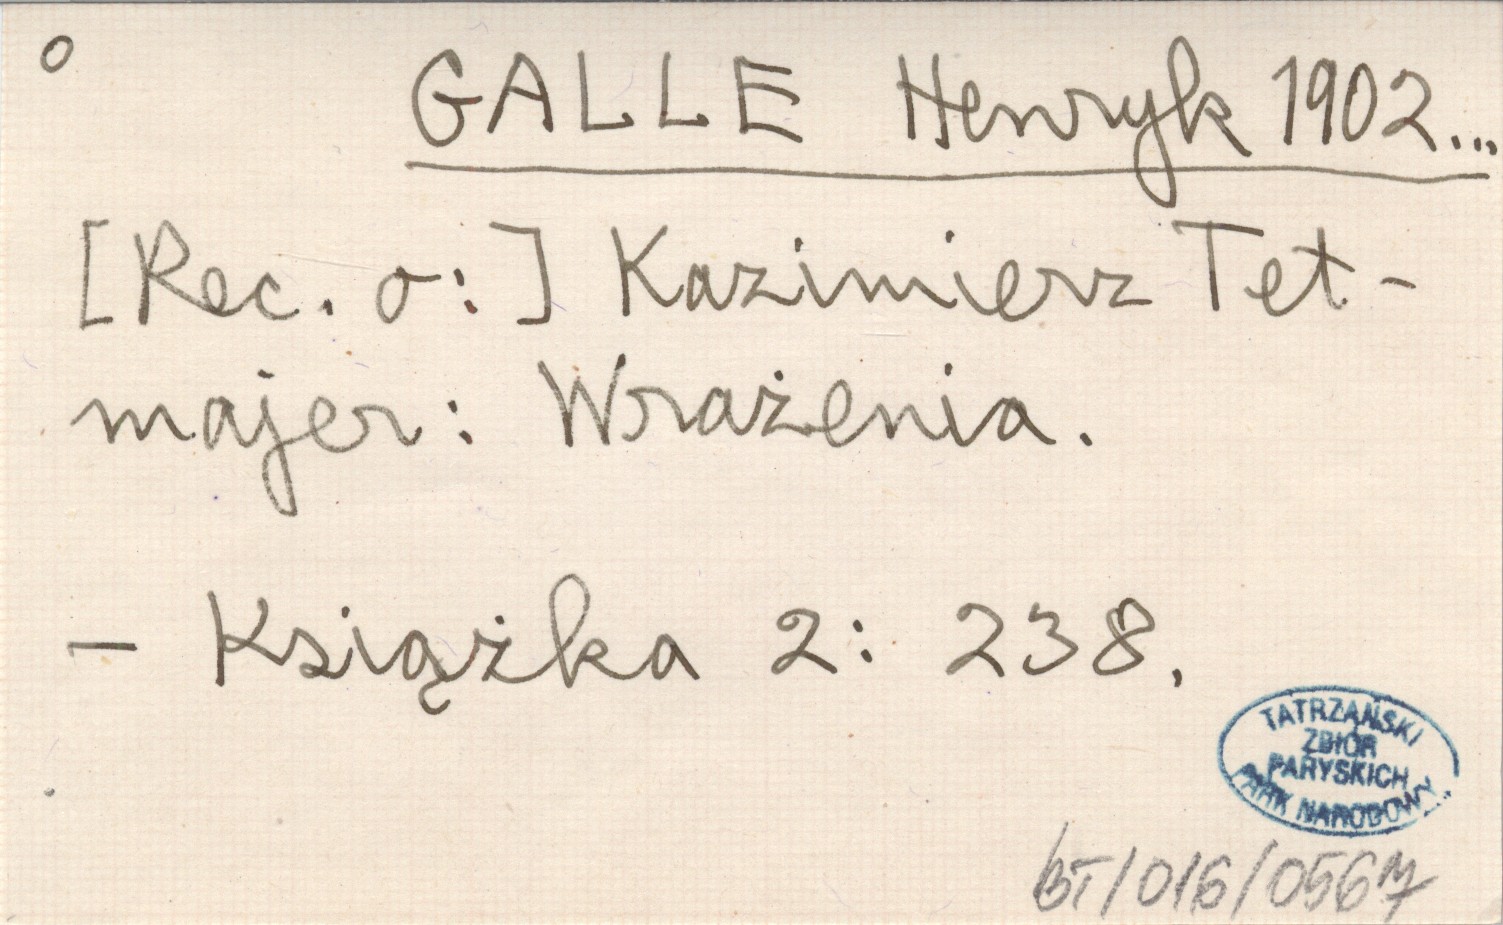 o
GALLE Henryk 1902...
[Rec. o:] Kazimierz Tet-
majer: Wrażenia.
- Książka 2: 238.
TATRZAŃSKI
ZBIÓR
PARYSKICH
PARK NARODOWY
BT/016/0567